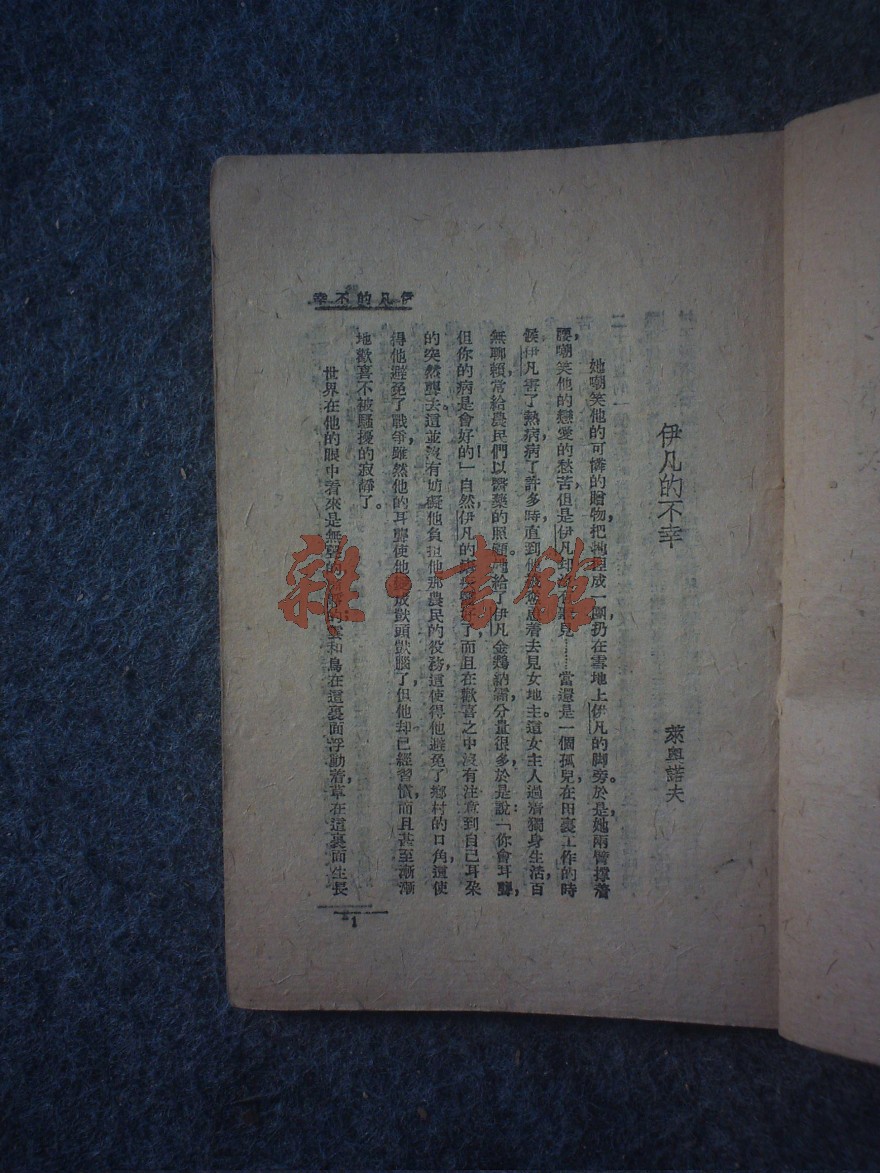 伊凡的不幸
伊凡的不幸
萊奧諾夫
她嘲笑他的可憐的贈物，把成一團扔在雪地上伊凡的脚旁。於是，她兩臂撐着
腰，嘲笑他的戀愛的愁苦但是伊凡却沒有聽見……當還是一個孤兒，在田裏工作的時
候，伊凡害了熱病，病了許多時，直到他着去見女地主。這女主人過着獨身生活，百
無聊賴，常給農民們以醫藥的照顧。她給了伊凡金鷄納霜，分量很多，於是說：「你會耳聾，
但你的病是會好的！」自然，伊凡的了，而且在歡喜之中沒有注意到自己耳朶
的突然聾去。這並沒有妨礙他負担他那農民的役務，這使得他避免了鄉村的口角，這使
得他避免了戰爭，雖然他的耳聾使他成獃頭獃腦了，但他却已經習慣，而且甚至漸漸
地歡喜不被騷擾的寂靜了。
世界在他的眼中看來是無聲的，雲和鳥在這裏面浮動着，草在這裏面生長
1
雜·書館